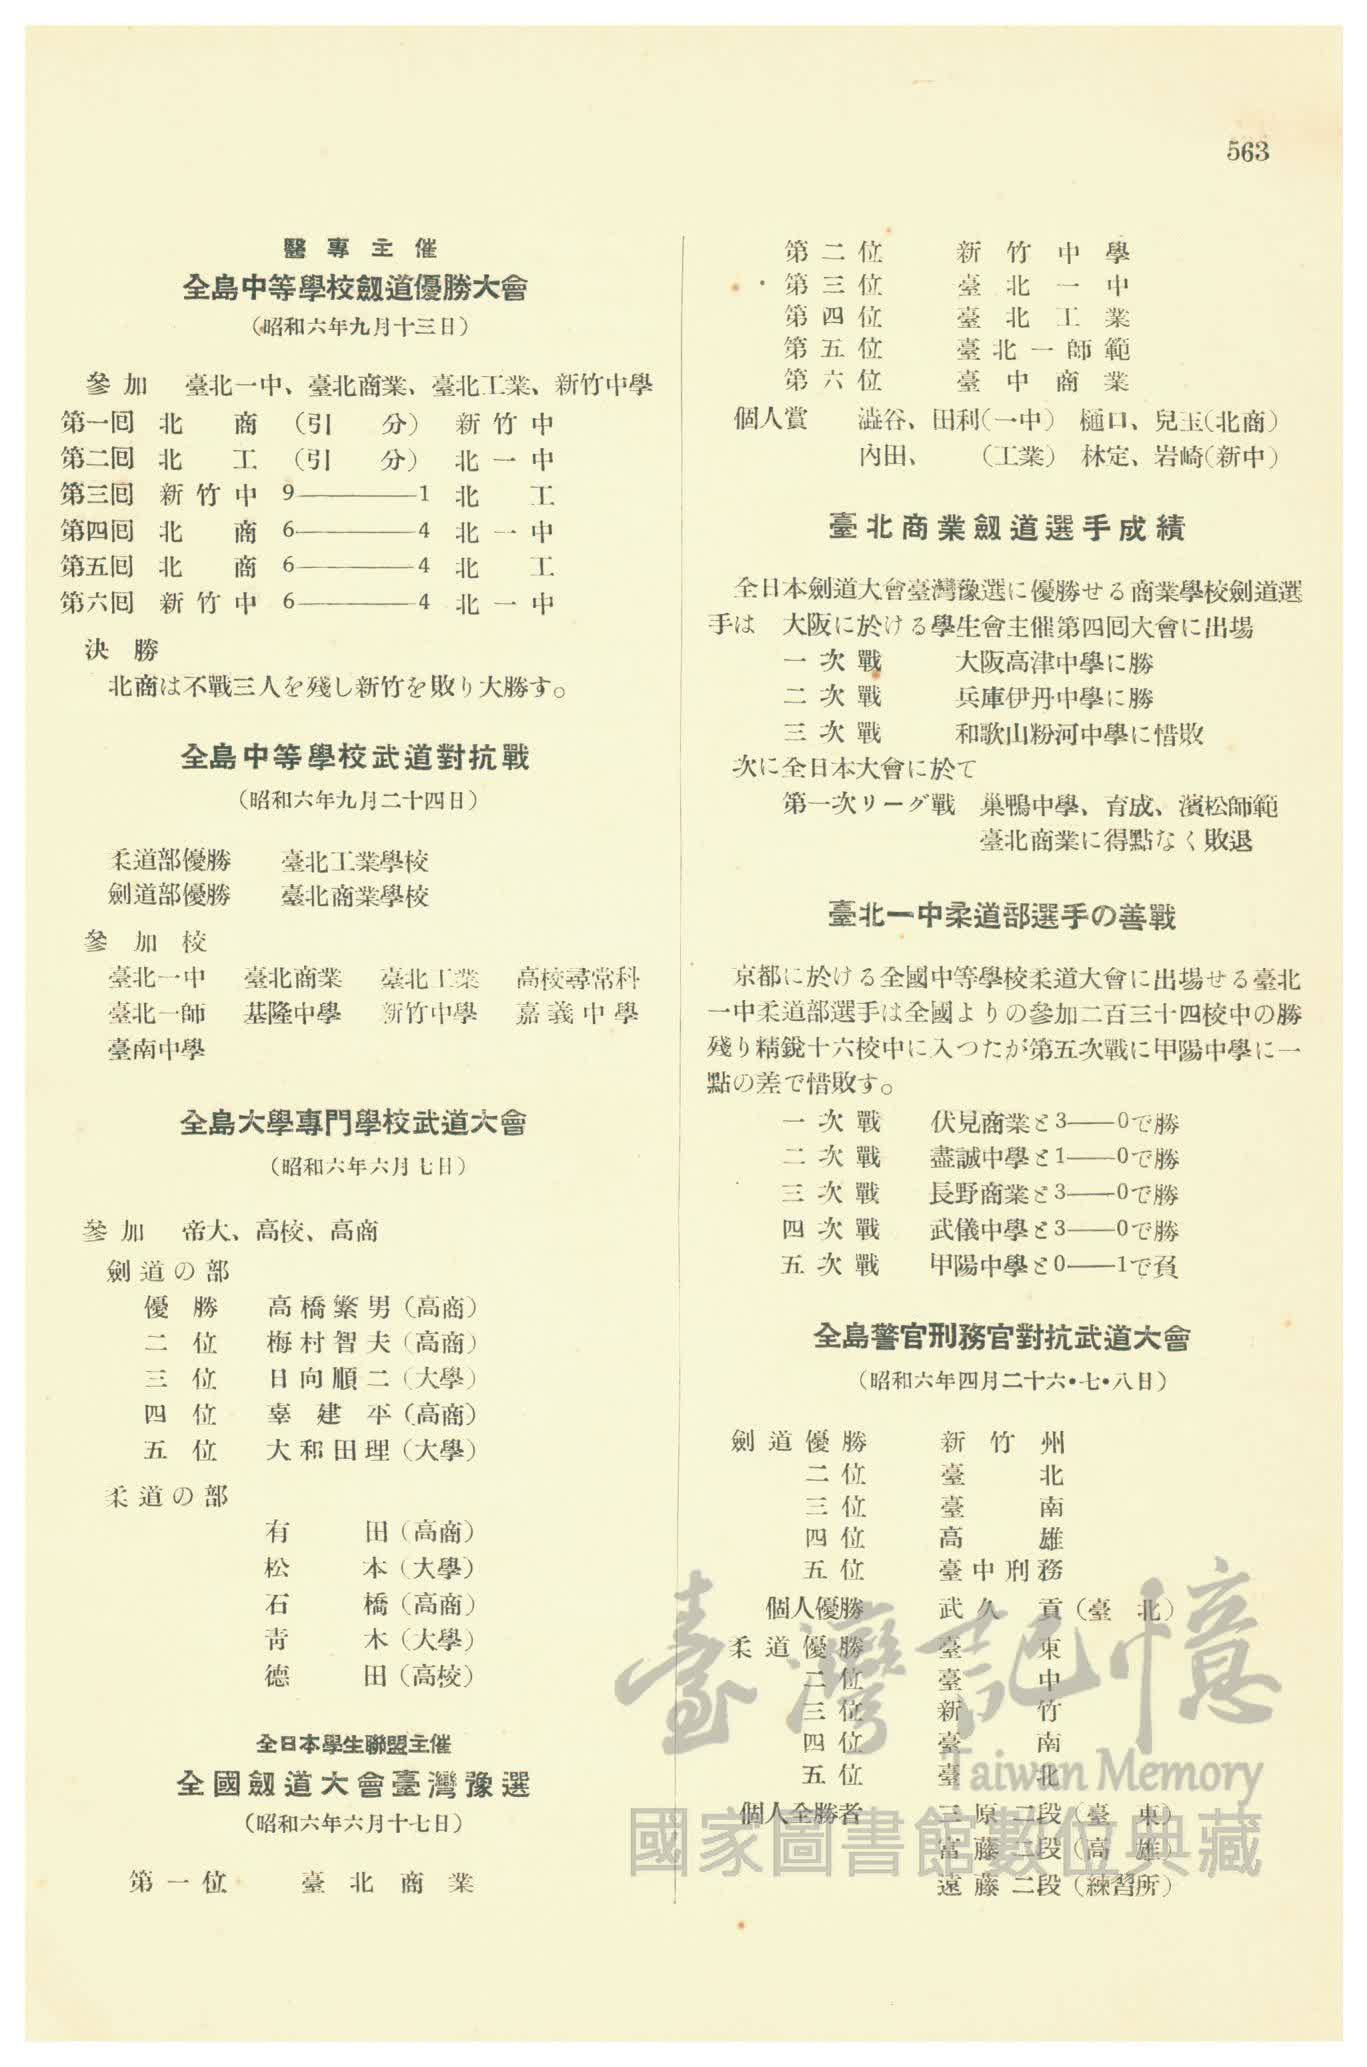 563
醫專主催
全島中等學校劔道優勝大會
(昭和六年九月十三日)
參加 臺北一中、臺北商業、臺北工業、新竹中學
第一回 北商 (引分) 新竹中
第二回 北工 (引分) 北一中
第三回 新竹中 9———1 北工
第四回 北商 6———4 北一中
第五回 北商 6———4 北工
第六回 新竹中 6———4 北一中
決勝
北商は不戰三人を殘し新竹を敗り大勝す。
全島中等學校武道對抗戰
(昭和六年九月二十四日)
柔道部優勝 臺北工業學校
劍道部優勝 臺北商業學校
參加校
臺北一中 臺北商業 臺北工業 高校尋常科
臺北一師 基隆中學 新竹中學 嘉義中學
臺南中學
全島大學專門學校武道大會
(昭和六年六月七日)
參加 帝大、高校、高商
劍道の部
優勝 高橋繁男(高商)
二位 梅村智夫(高商)
三位 日向順二(大學)
四位 辜建平(高商)
五位 大和田理(大學)
柔道の部
有田(高商)
松本(大學)
石橋(高商)
靑木(大學)
德田(高校)
全日本學生聯盟主催
全國劔道大會臺灣豫選
(昭和六年六月十七日)
第一位 臺北商業
第二位 新竹中學
第三位 臺北一中
第四位 臺北工業
第五位 臺北一師範
第六位 臺中商業
個人賞 澁谷、田利(一中) 樋口、兒玉(北商)
內田、 (工業) 林定、岩崎(新中)
臺北商業劔道選手成績
全日本劍道大會臺灣豫選に優勝せる商業學校劍道選
手は 大阪に於ける學生會主催第四回大會に出場
一次戰 大阪高津中學に勝
二次戰 兵庫伊丹中學に勝
三次戰 和歌山粉河中學に惜敗
次に全日本大會に於て
第一次リーグ戰 巢鴨中學、育成、濱松師範
臺北商業に得點なく敗退
臺北一中柔道部選手の善戰
京都に於ける全國中等學校柔道大會に出場せる臺北
一中柔道部選手は全國よりの參加二百三十四校中の勝
殘り精銳十六校中に入つたが第五次戰に甲陽中學に一
點の差で惜敗す。
一次戰 伏見商業と3——0で勝
二次戰 盡誠中學と1——0で勝
三次戰 長野商業と3——0で勝
四次戰 武儀中學と3——0で勝
五次戰 甲陽中學と0——1で負
全島警官刑務官對抗武道大會
(昭和六年四月二十六・七・八日)
劍道優勝 新竹州
二位 臺北
三位 臺南
四位 高雄
五位 臺中刑務
個人優勝 武久貢(臺北)
柔道優勝 臺東
二位 臺中
三位 新竹
四位 臺南
五位 臺北
個人全勝者 三原二段(臺東)
富藤二段(高雄)
遠藤二段(練習所)
臺灣記憶
Taiwan Memory
國家圖書館數位典藏